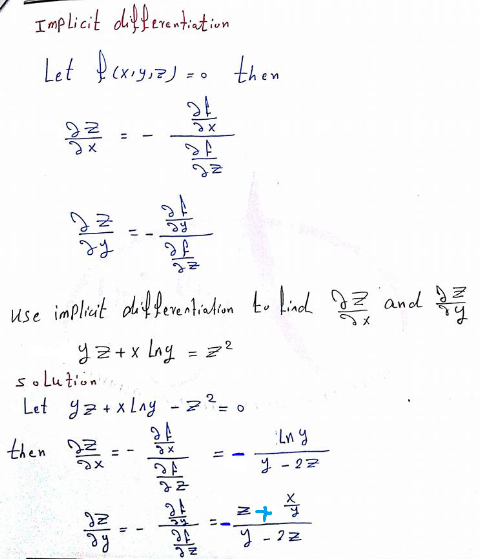 Implicit differentiation
Let f(x,y,z) = 0 then
∂z/∂x = - (∂f/∂x)/(∂f/∂z)
∂z/∂y = - (∂f/∂y)/(∂f/∂z)
use implicit differentiation to find ∂z/∂x and ∂z/∂y
yz + x Lny = z²
solution
Let yz + x Lny - z² = 0
then ∂z/∂x = - (∂f/∂x)/(∂f/∂z) = - (Lny)/(y - 2z)
∂z/∂y = - (∂f/∂y)/(∂f/∂z) = - (z + x/y)/(y - 2z)